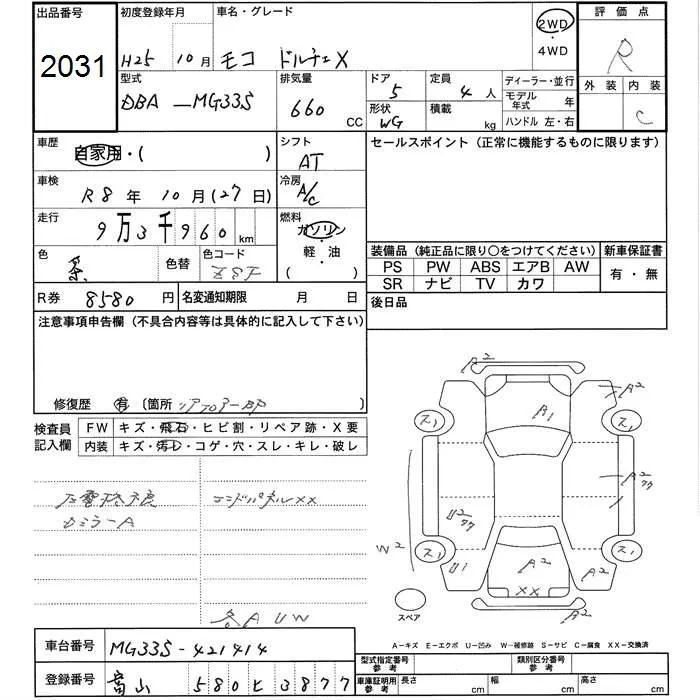 出品番号 初度登録年月 車名・グレード 評価点
2031 H25 10月 モコ ドルチェX 2WD・4WD R
外装 内装
C
型式 排気量 ドア 定員 ディーラー・並行
DBA-MG33S 660 CC 5 4人 モデル年式 年
形状 積載 ハンドル 左・右
WG kg
車歴 シフト セールスポイント（正常に機能するものに限ります）
自家用・( ) AT
車検 冷房
R8年 10月(27日) A/C
走行 燃料
9万3千960km ガソリン・軽・油( )
色 色替 色コード 装備品（純正品に限り○をつけてください） 新車保証書
PS PW ABS エアB AW 有・無
SR ナビ TV カワ
R券 8580円 名変通知期限 月 日 後日品
注意事項申告欄（不具合内容等は具体的に記入して下さい）
修復歴 有 〔箇所 リアフロアー凹
検査員記入欄 FW キズ・飛石・ヒビ割・リペア跡・X要
内装 キズ・汚レ・コゲ・穴・スレ・キレ・破レ
エンドパネルXX
ミラーA
各A UW
A2
A2
B1
ス1 ス1
A2
77
U2
77
W2
ス1 ス1
U1 A2 A2
XX
スペア
A2
A－キズ E－エクボ U－凹み W－補修跡 S－サビ C－腐食 XX－交換済
車台番号 MG33S-421414
型式指定番号参考 類別区分番号参考
登録番号 富山 580 ヒ 3877
車庫証明用参考 長さ cm 幅 cm 高さ cm